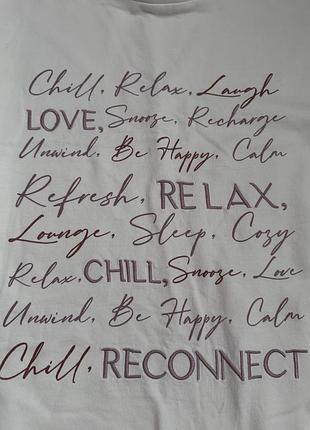 Chill, Relax, Laugh
LOVE, Snooze, Recharge
Unwind, Be Happy, Calm
Refresh, RELAX,
Lounge, Sleep, Cozy
Relax, CHILL, Snooze, Love
Unwind, Be Happy, Calm
Chill, RECONNECT